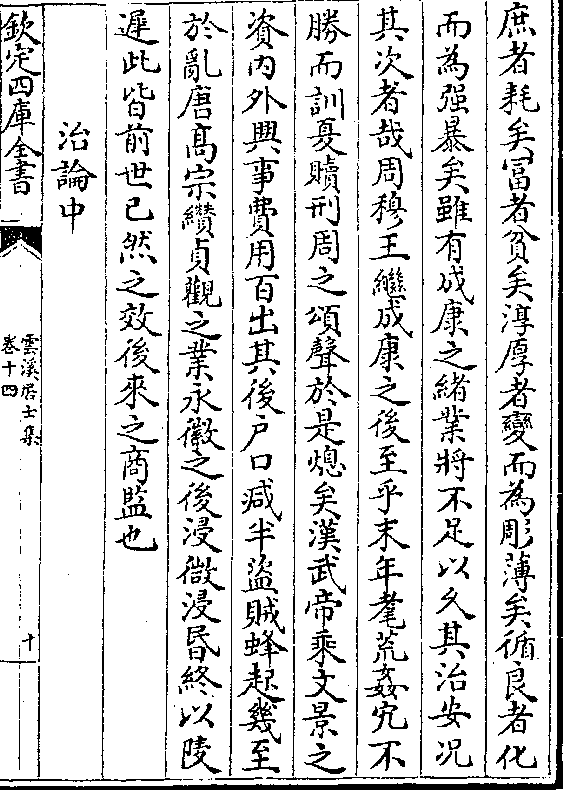 庶者耗矣冨者貧矣淳厚者變而為彫薄矣循良者化
而為强暴矣雖有成康之緒業將不足以久其治安况
其次者哉周穆王繼成康之後至乎末年耄荒姦宄不
勝而訓夏贖刑周之頌聲於是熄矣漢武帝乘文景之
資内外興事費用百出其後户口減半盜賊蜂起幾至
於亂唐髙宗纘貞觀之業永徽之後浸微浸昬終以陵
遲此皆前世已然之效後來之商監也
治論中
欽定四庫全書
雲溪居士集
卷十四
十